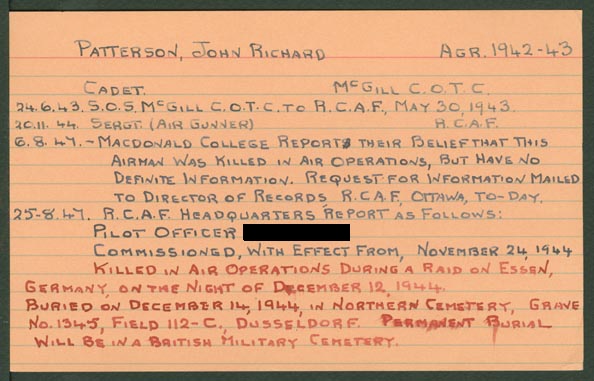 PATTERSON, JOHN RICHARD AGR. 1942-43
CADET. MCGILL C.O.T.C.
24.6.43. S.O.S. MCGILL C.O.T.C. TO R.C.A.F., MAY 30, 1943.
20.11.44. SERGT. (AIR GUNNER) R.C.A.F.
6.8.47.- MACDONALD COLLEGE REPORTS THEIR BELIEF THAT THIS
AIRMAN WAS KILLED IN AIR OPERATIONS, BUT HAVE NO
DEFINITE INFORMATION. REQUEST FOR INFORMATION MAILED
TO DIRECTOR OF RECORDS, R.C.A.F., OTTAWA, TO-DAY.
25-8.47. R.C.A.F. HEADQUARTERS REPORT AS FOLLOWS:
PILOT OFFICER
COMMISSIONED, WITH EFFECT FROM, NOVEMBER 24, 1944
KILLED IN AIR OPERATIONS DURING A RAID ON ESSEN,
GERMANY, ON THE NIGHT OF DECEMBER 12, 1944.
BURIED ON DECEMBER 14, 1944, IN NORTHERN CEMETERY, GRAVE
NO. 1345, FIELD 112-C, DUSSELDORF. PERMANENT BURIAL
WILL BE IN A BRITISH MILITARY CEMETERY.